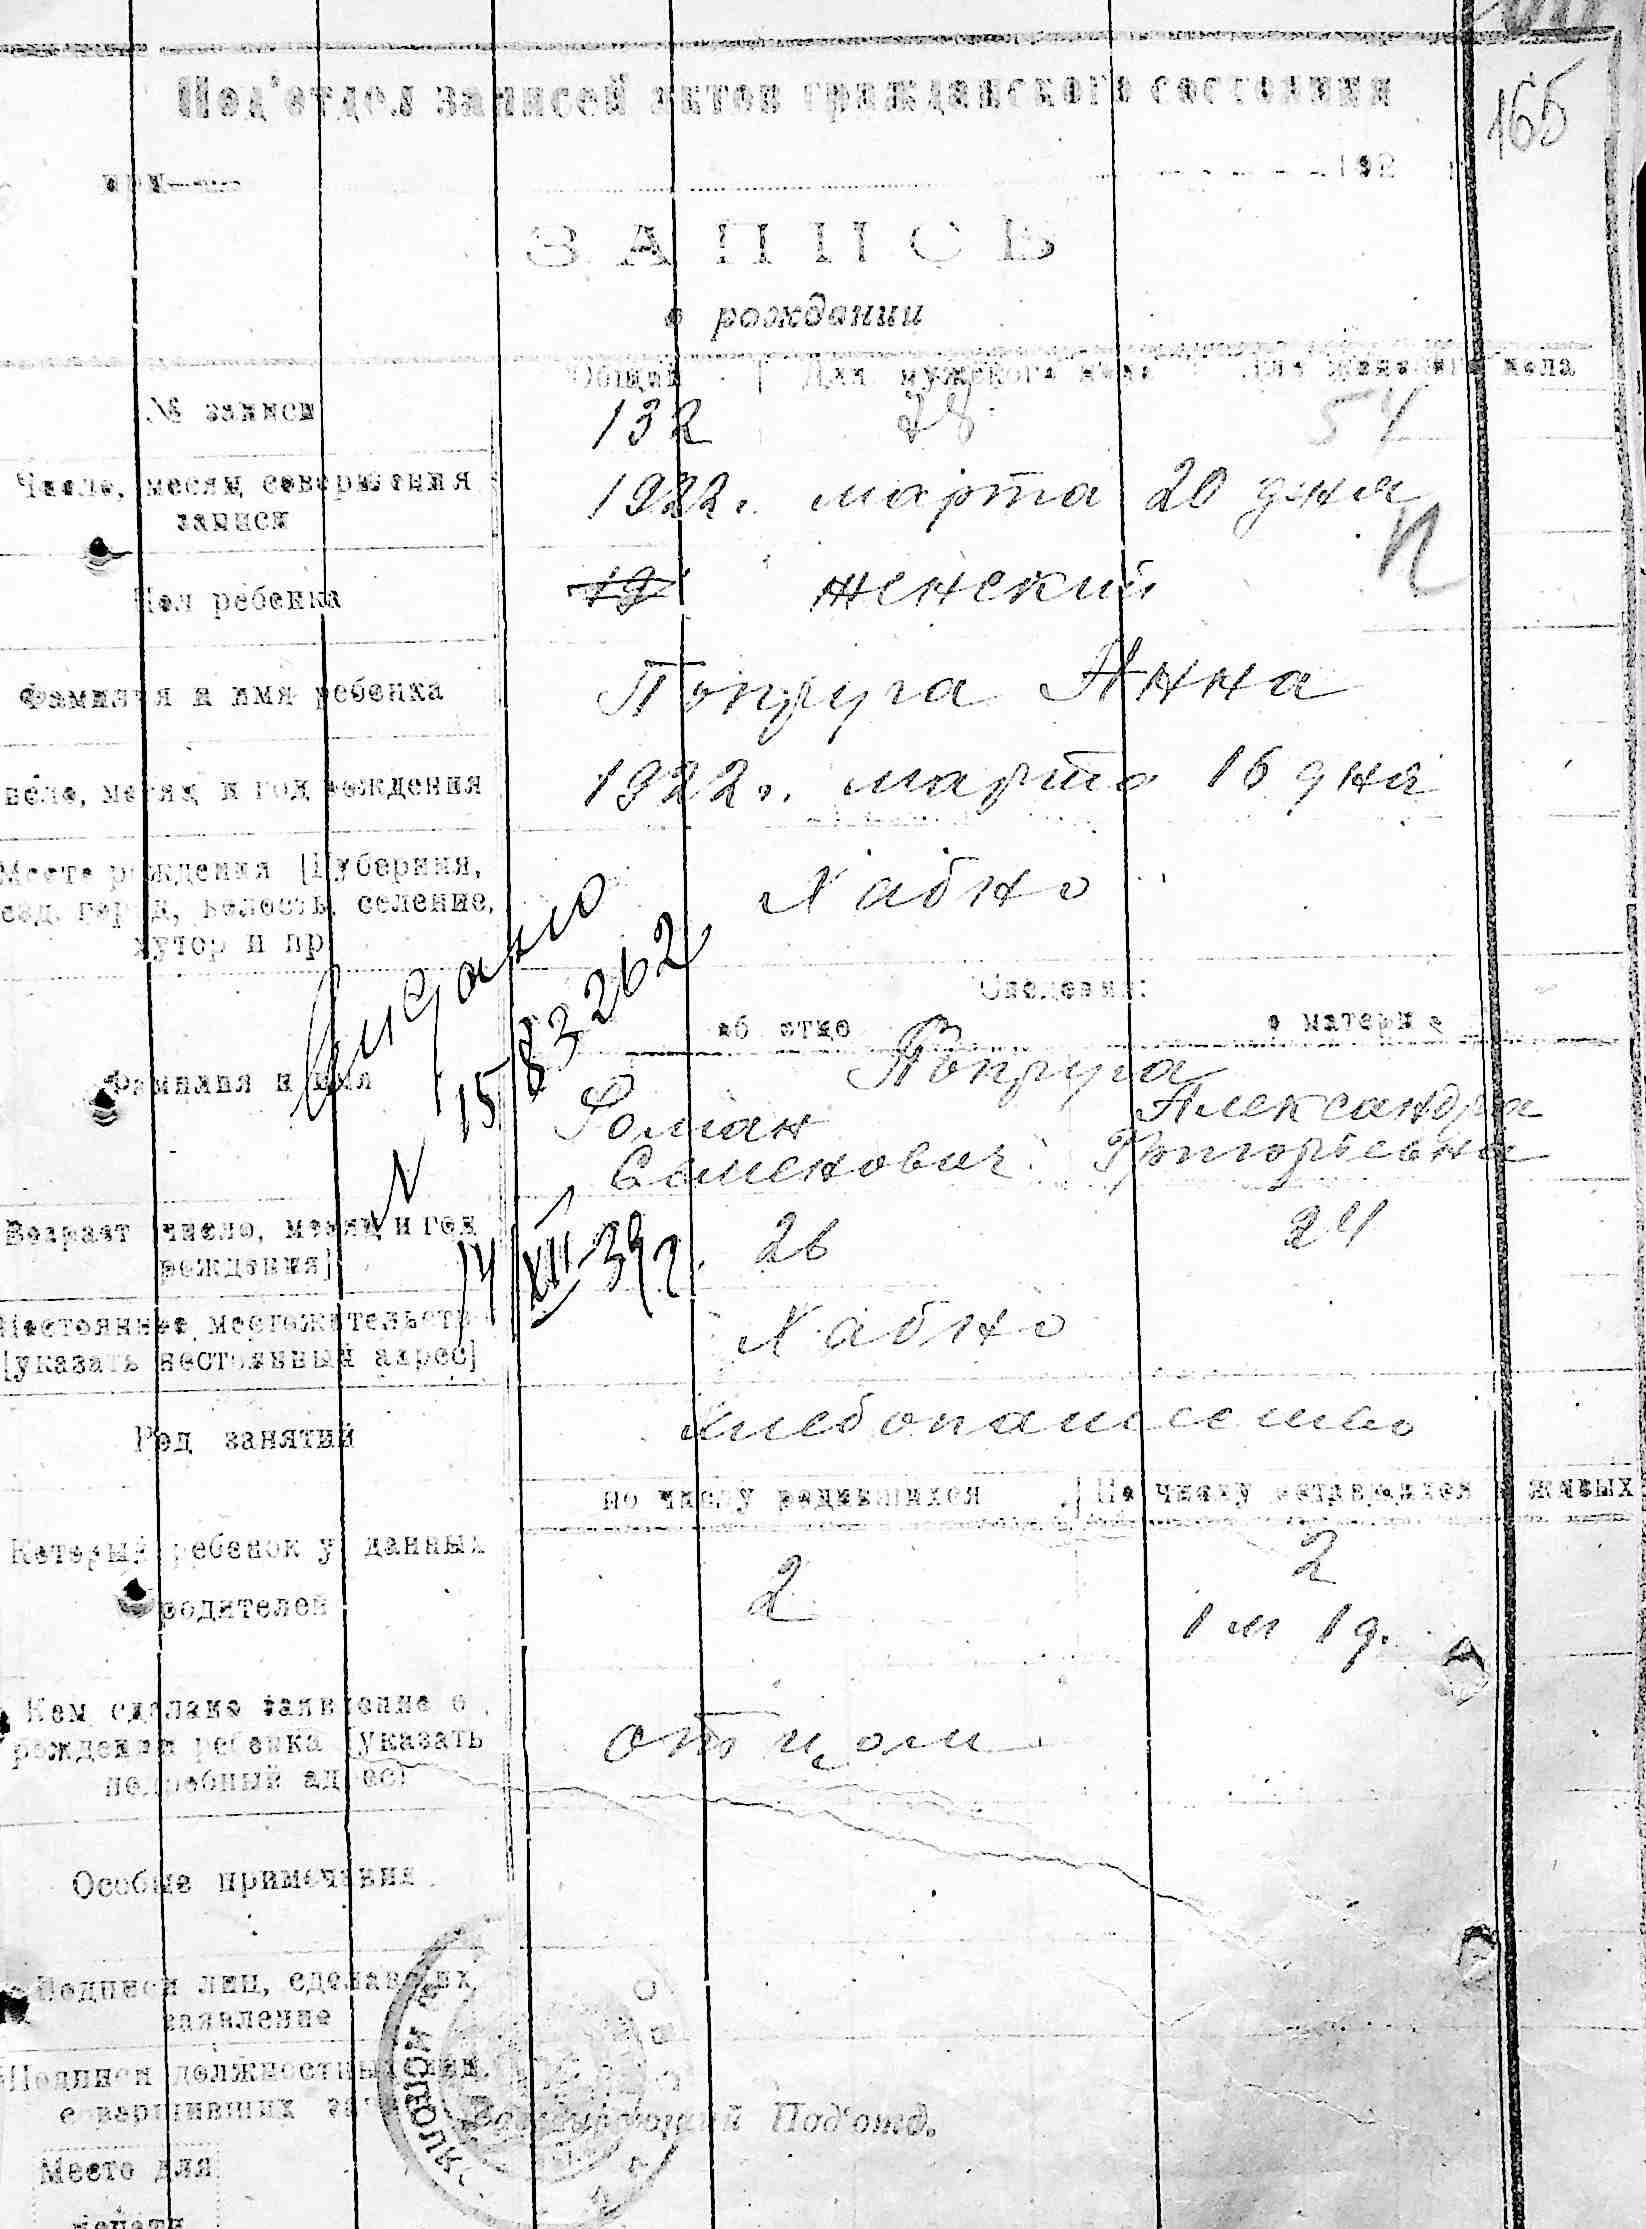 165
Под'отдел записей актов гражданского состояния
при
192
ЗАПИСЬ
о рождении
Общий Для мужского пола Для женского пола
№ записи 132 78 54
Число, месяц совершения записи 1922 г. марта 20 дня
П
Пол ребенка 19 женский
Фамилия и имя ребенка Попруга Анна
число, месяц и год рождения 1922 г. марта 16 дня
Место рождения [Губерния, уезд, город, волость, селение, хутор и пр. Хабно
Сведения:
об отце о матери
Фамилия и имя Попруга
Роман Александра
Семенович Григорьевна
Выдано
N 15/83262
14/XII-39 г.
Возраст [число, месяц и год рождения] 26 24
Постоянное местожительство [указать постоянный адрес] Хабно
Род занятий хлебопашество
по числу родившихся По числу оставшихся в живых
Который ребенок у данных родителей 2 2
1 м 1 д.
Кем сделано заявление о рождении ребенка [указать подробный адрес] отцом
Особые примечания
Подписи лиц, сделавших заявление
Подписи должностных лиц, совершивших
Заведывающий Под'отд.
Место для
печати